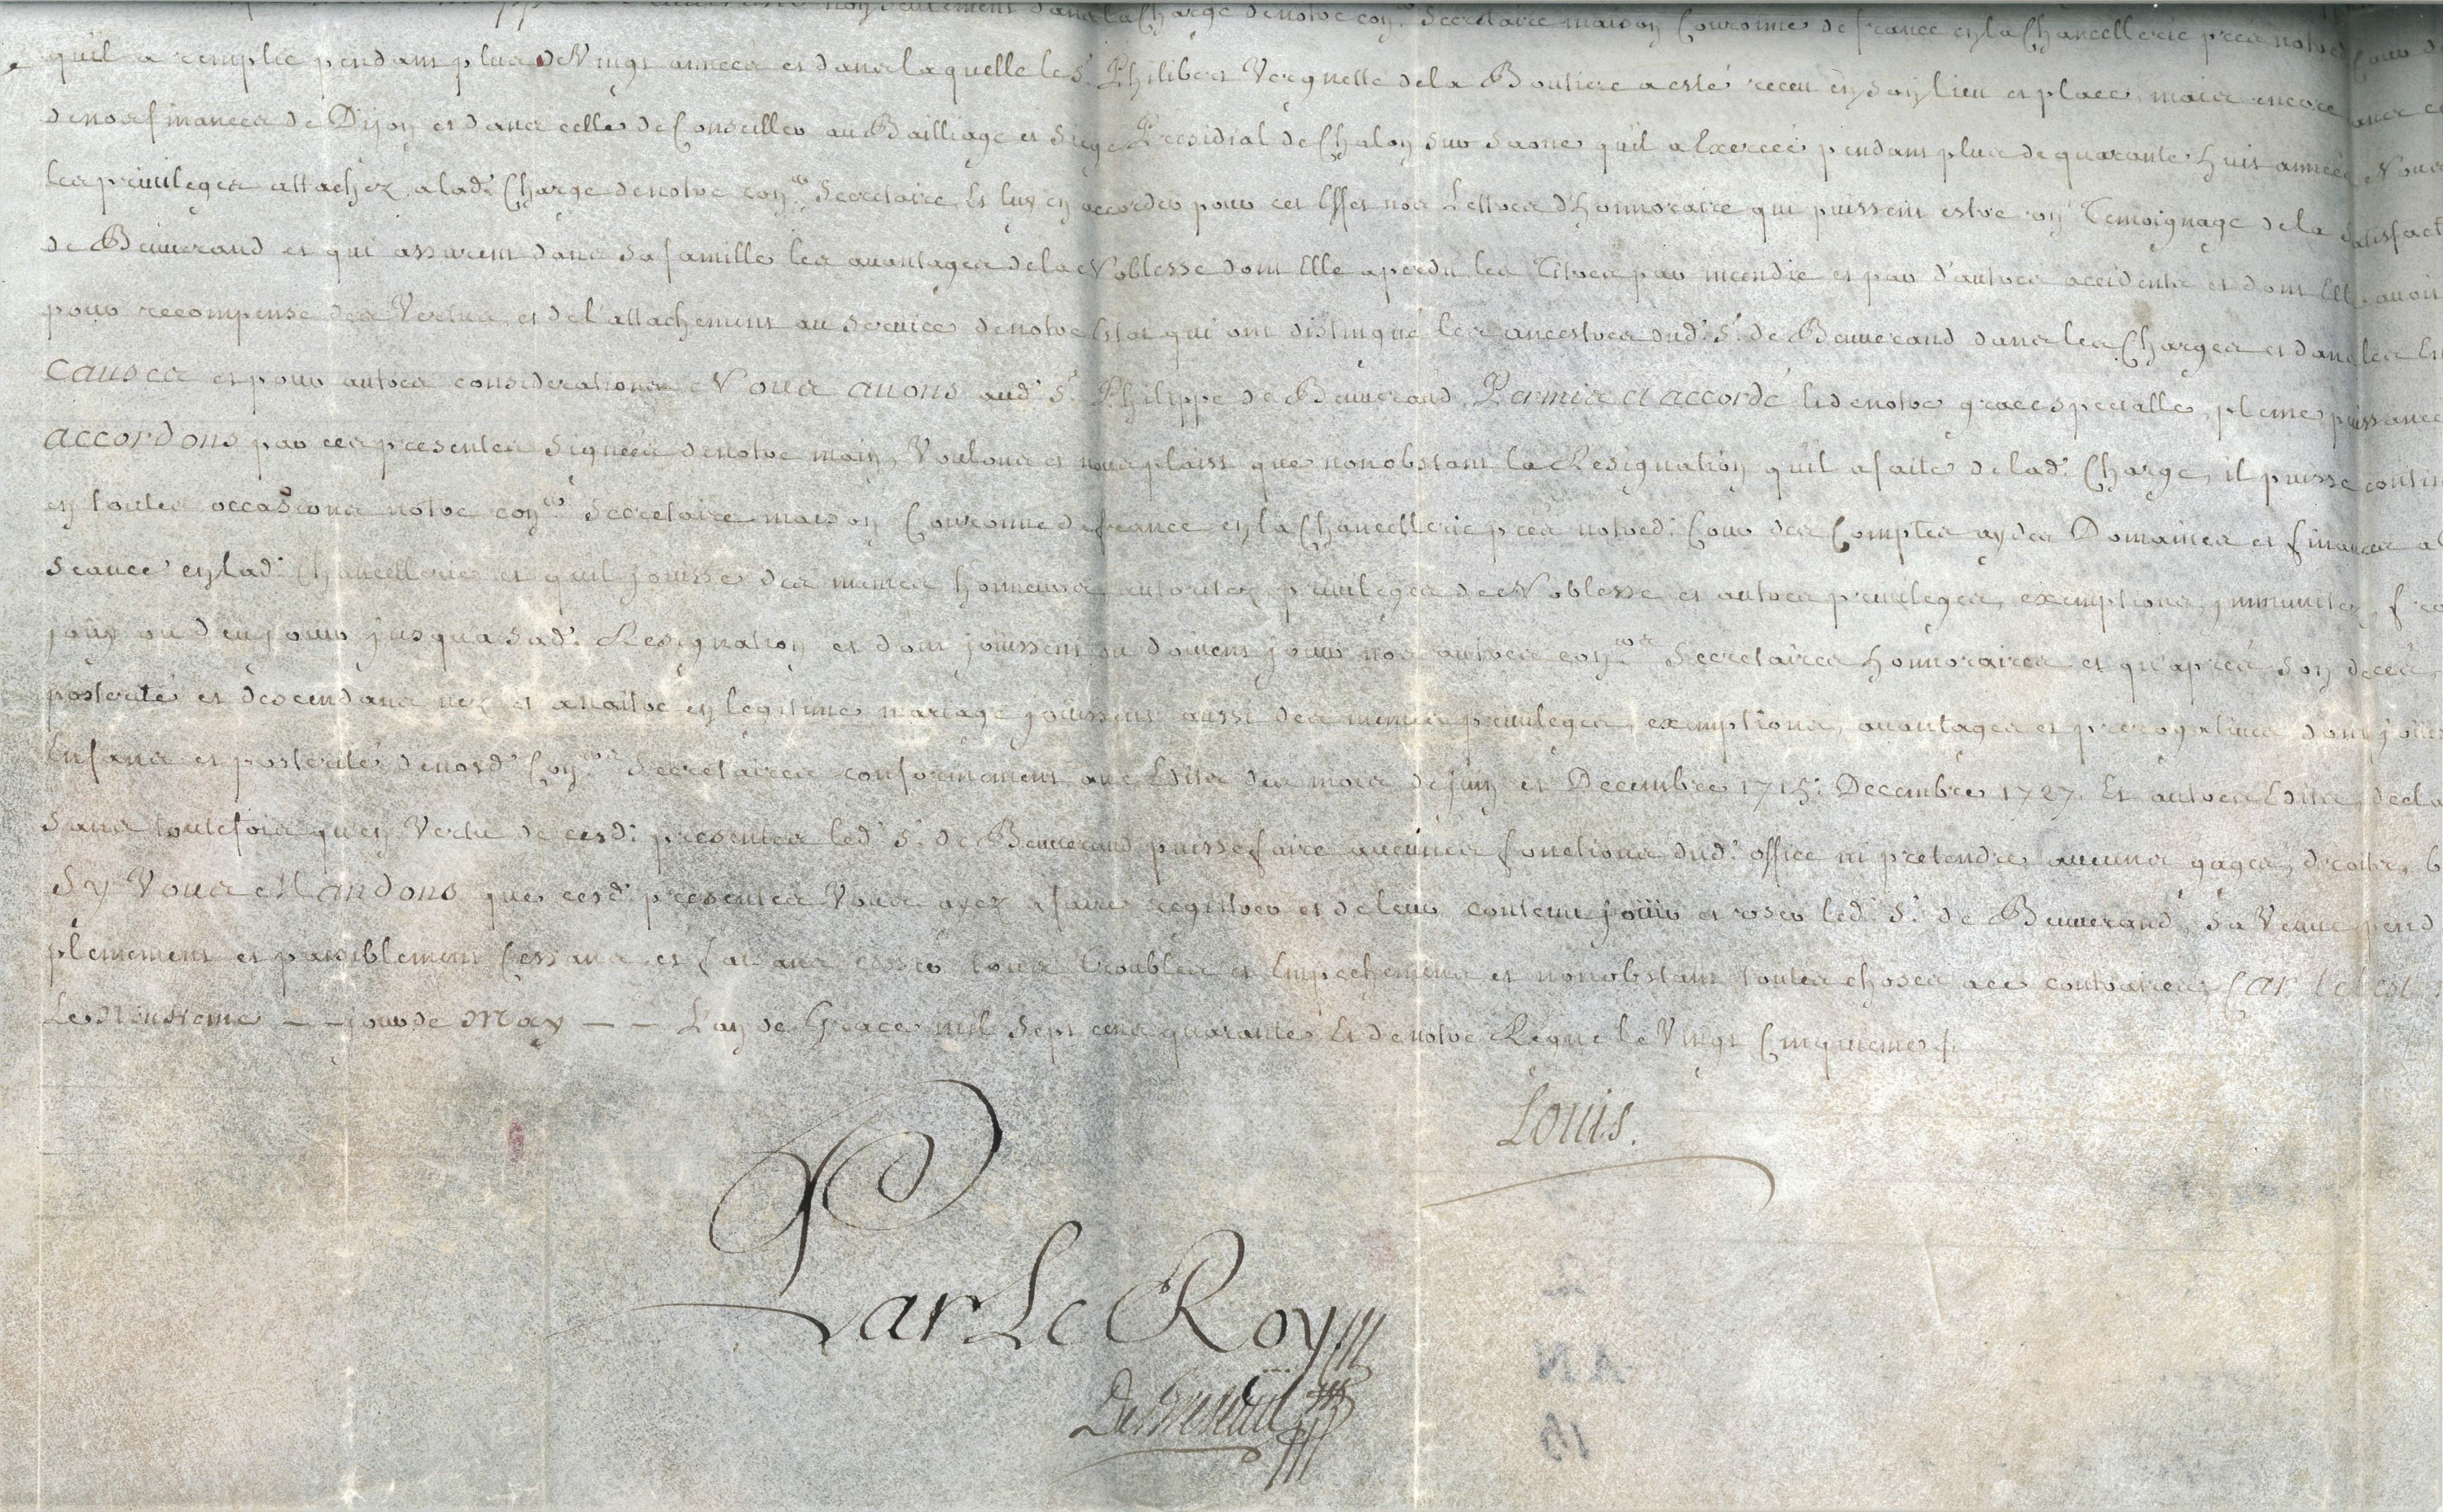 non seulement dans la Charge de notre con.er Secretaire maison Couronne de france en la Chancellerie prés notred. Cour d
qu'il a remplie pendant plus de Vingt années et dans laquelle le S.r Philibert Vergnette de la Boutiere a esté receu en son lieu et place, mais encore
de nos finances de Dijon et dans celle de Conseiller au Bailliage et Siege Presidial de Chalon sur Saone qu'il a Exercée pendant plus de quarante huit années Nous
les privileges attachez a lad. Charge de notre con.er Secretaire, Et luy en accorder pour cet Effet nos Lettres d'honnoraire qui puissent estre un Temoignage de la Satisfact
de Beuverand et qui assurent dans sa famille les avantages de la Noblesse dont Elle a perdu les Titres par incendie et par d'autres accidents et dont Elle avoit
pour recompense des Vertus et de l'attachement au service de notre Etat qui ont distingué les ancestres dud. S.r de Beuverand dans les Charges et dans les
Causes et pour autres considerations Nous avons aud. S.r Philippe de Beuverand, Permis et accordé et de notre grace specialle, pleine puissance
accordons par ces presentes signées de notre main, Voulons et nous plaist que nonobstant la Resignation qu'il a faite de lad. Charge, il puisse contin
en toutes occasions notre con.er Secretaire maison Couronne de france en la Chancellerie prés notred. Cour des Comptes aydes Domaines et finances
Seance en lad. Chancellerie et qu'il jouisse des mêmes honneurs autoritez privileges de Noblesse et autres privileges, exemptions, immunitez, fra
jouy ou deu jouir jusqu'a sad. Resignation et dont joüissent ou doivent jouir nos autres con.ers Secretaires honnoraires et qu'aprés son decés,
posterité et descendans nez et a naitre en legitime mariage jouissent aussi des mêmes privileges, exemptions, avantages et prerogatives dont joüis
Enfans et posterité de nosd. Con.ers Secretaires conformement aux Edits des mois de juin et Decembre 1715. Decembre 1727. Et autres Edits, decla
Sans toutefois qu'en Vertu de cesd. presentes led. S.r de Beuverand puisse faire aucunes fonctions dud. office ni pretendre aucuns gages, droits,
Sy Vous Mandons que cesd. presentes Vous ayez a faire registrer et de leur contenu joüir et user led. S.r de Beuverand, sa Veuve pend
plenement et paisiblement Cessant et faisant cesser tous troubles et Empechemens et nonobstant toutes choses a ce contraires, Car tel est
Le Neufieme — — jour de May — — L'an de Grace mil sept cens quarante Et de notre Regne le Vingt Cinquieme
Louis.
Par Le Roy